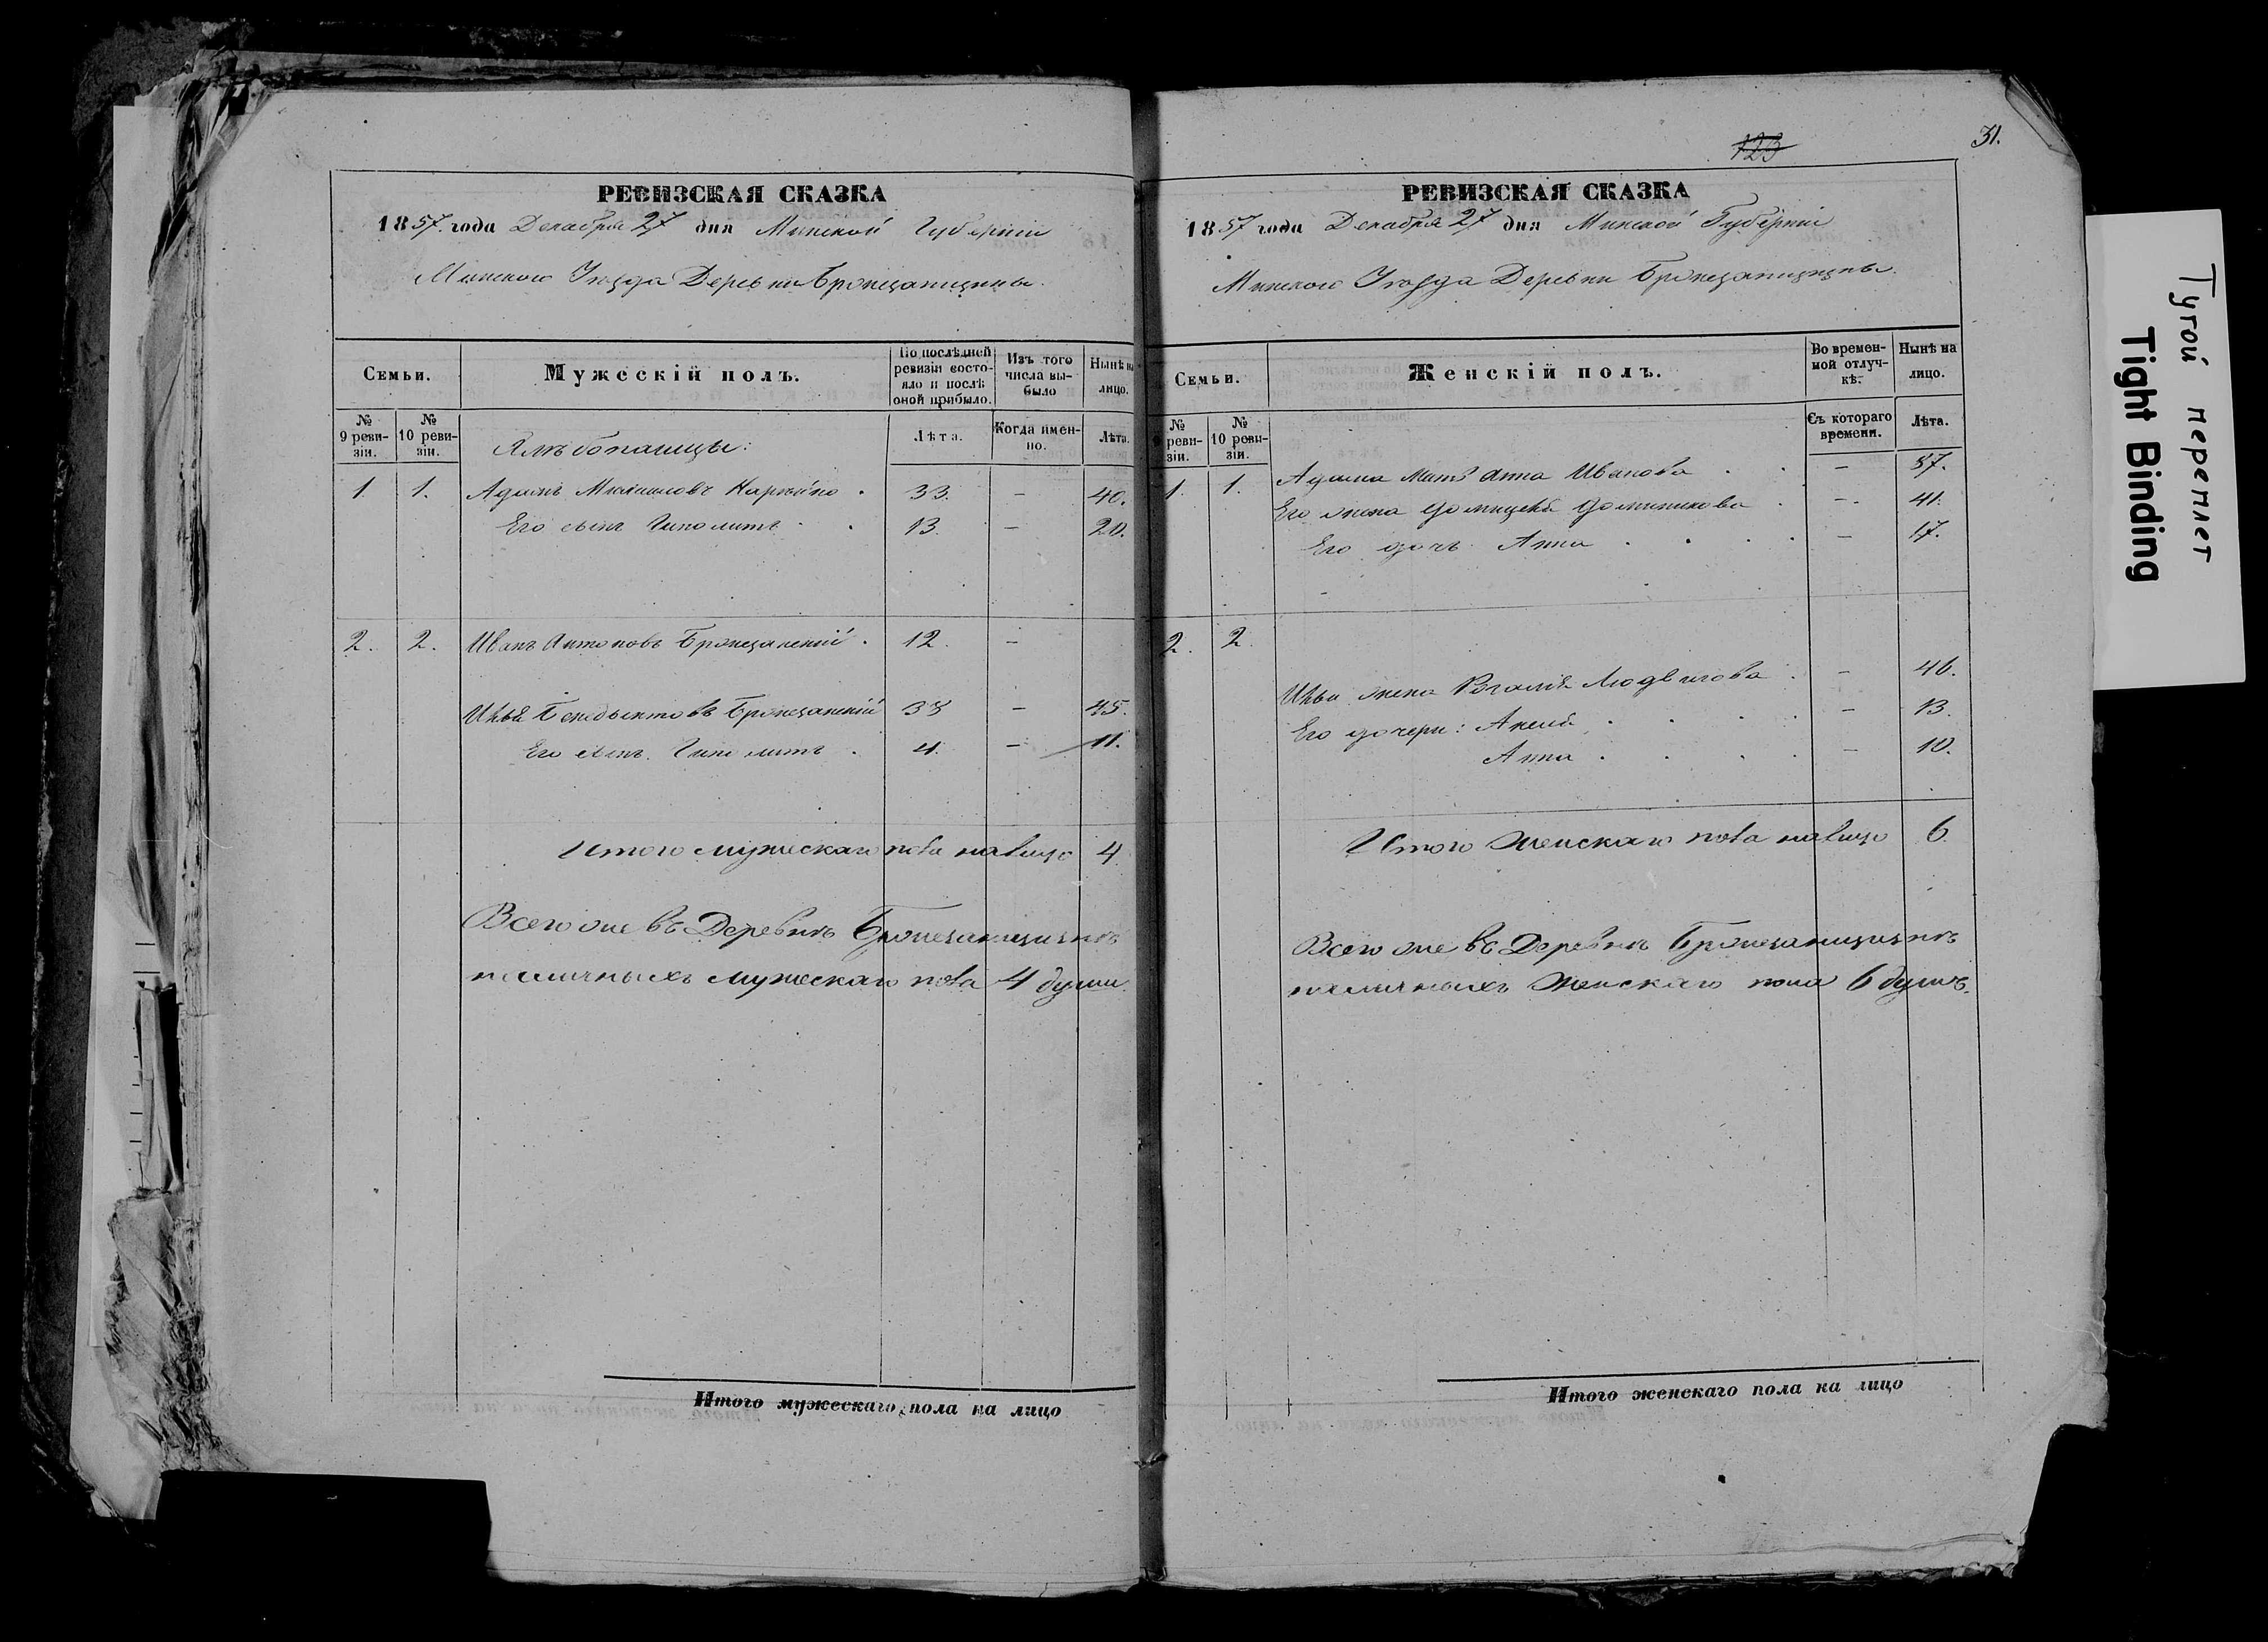 РЕВИЗСКАЯ СКАЗКА
1857 года Декабря 27 дня Минской Губерніи
Минского Уѣзда Деревни
Семьи.
Мужескій полъ.
По послѣдней ревизіи состояло и послѣ оной прибыло.
Изъ того числа выбыло
Нынѣ на лицо.
№ 9 ревизіи.
№ 10 ревизіи.
Лѣта.
Когда именно.
Лѣта.
1. 1. Адамъ 33. – 40.
Его сынъ Гиполитъ 13. – 20.
2. 2. Иванъ Антоновъ 12. –
– 45.
Его сынъ Гиполитъ 4. – 11.
Итого мужескаго пола налицо 4
Всего же въ Деревнѣ
наличныхъ мужескаго пола 4 души.
Итого мужескаго пола на лицо
123
31.
РЕВИЗСКАЯ СКАЗКА
1857 года Декабря 27 дня Минской Губерніи
Минского Уѣзда Деревни
Семьи.
Женскій полъ.
Во временной отлучкѣ.
Нынѣ на лицо.
№ ревизіи.
№ 10 ревизіи.
Съ котораго времени.
Лѣта.
1. 1. Адама мать Анна Иванова – 57.
Его жена Доминикова – 41.
Его дочь Анна – 17.
2. 2.
жена Розалія Людвигова – 46.
Его дочери: – 13.
Анна – 10.
Итого женскаго пола налицо 6.
Всего же въ Деревнѣ
наличныхъ женскаго пола 6 душъ.
Итого женскаго пола на лицо
Тугой переплет
Tight Binding